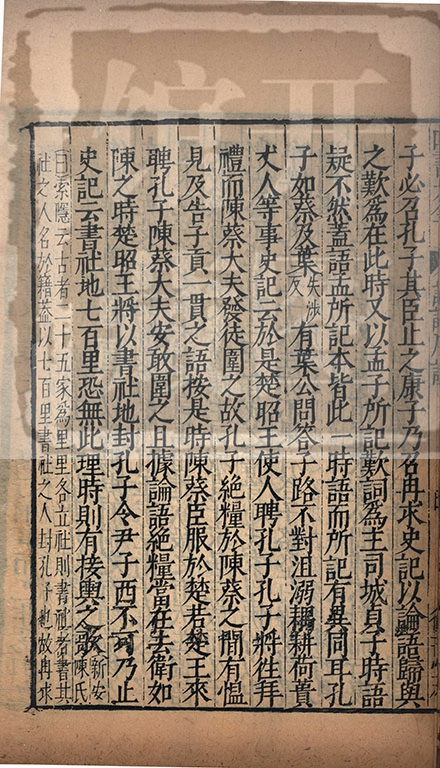 子必召孔子其臣止之康子乃召冉求史記以論語歸與
之歎爲在此時又以孟子所記歎詞爲主司城貞子時語
疑不然蓋語孟所記本皆此一時語而所記有異同耳孔
子如蔡及葉失涉反有葉公問答子路不對沮溺耦耕荷蓧
丈人等事史記云於是楚昭王使人聘孔子孔子將往拜
禮而陳蔡大夫發徒圍之故孔子絶糧於陳蔡之間有慍
見及告子貢一貫之語按是時陳蔡臣服於楚若楚王來
聘孔子陳蔡大夫安敢圍之且據論語絶糧當在去衛如
陳之時楚昭王將以書社地封孔子令尹子西不可乃止
史記云書社地七百里恐無此理時則有接輿之歌新安陳氏
曰索隱云古者二十五家爲里里各立社則書社者書其
社之人名於籍蓋以七百里書社之人封孔子也故冉求